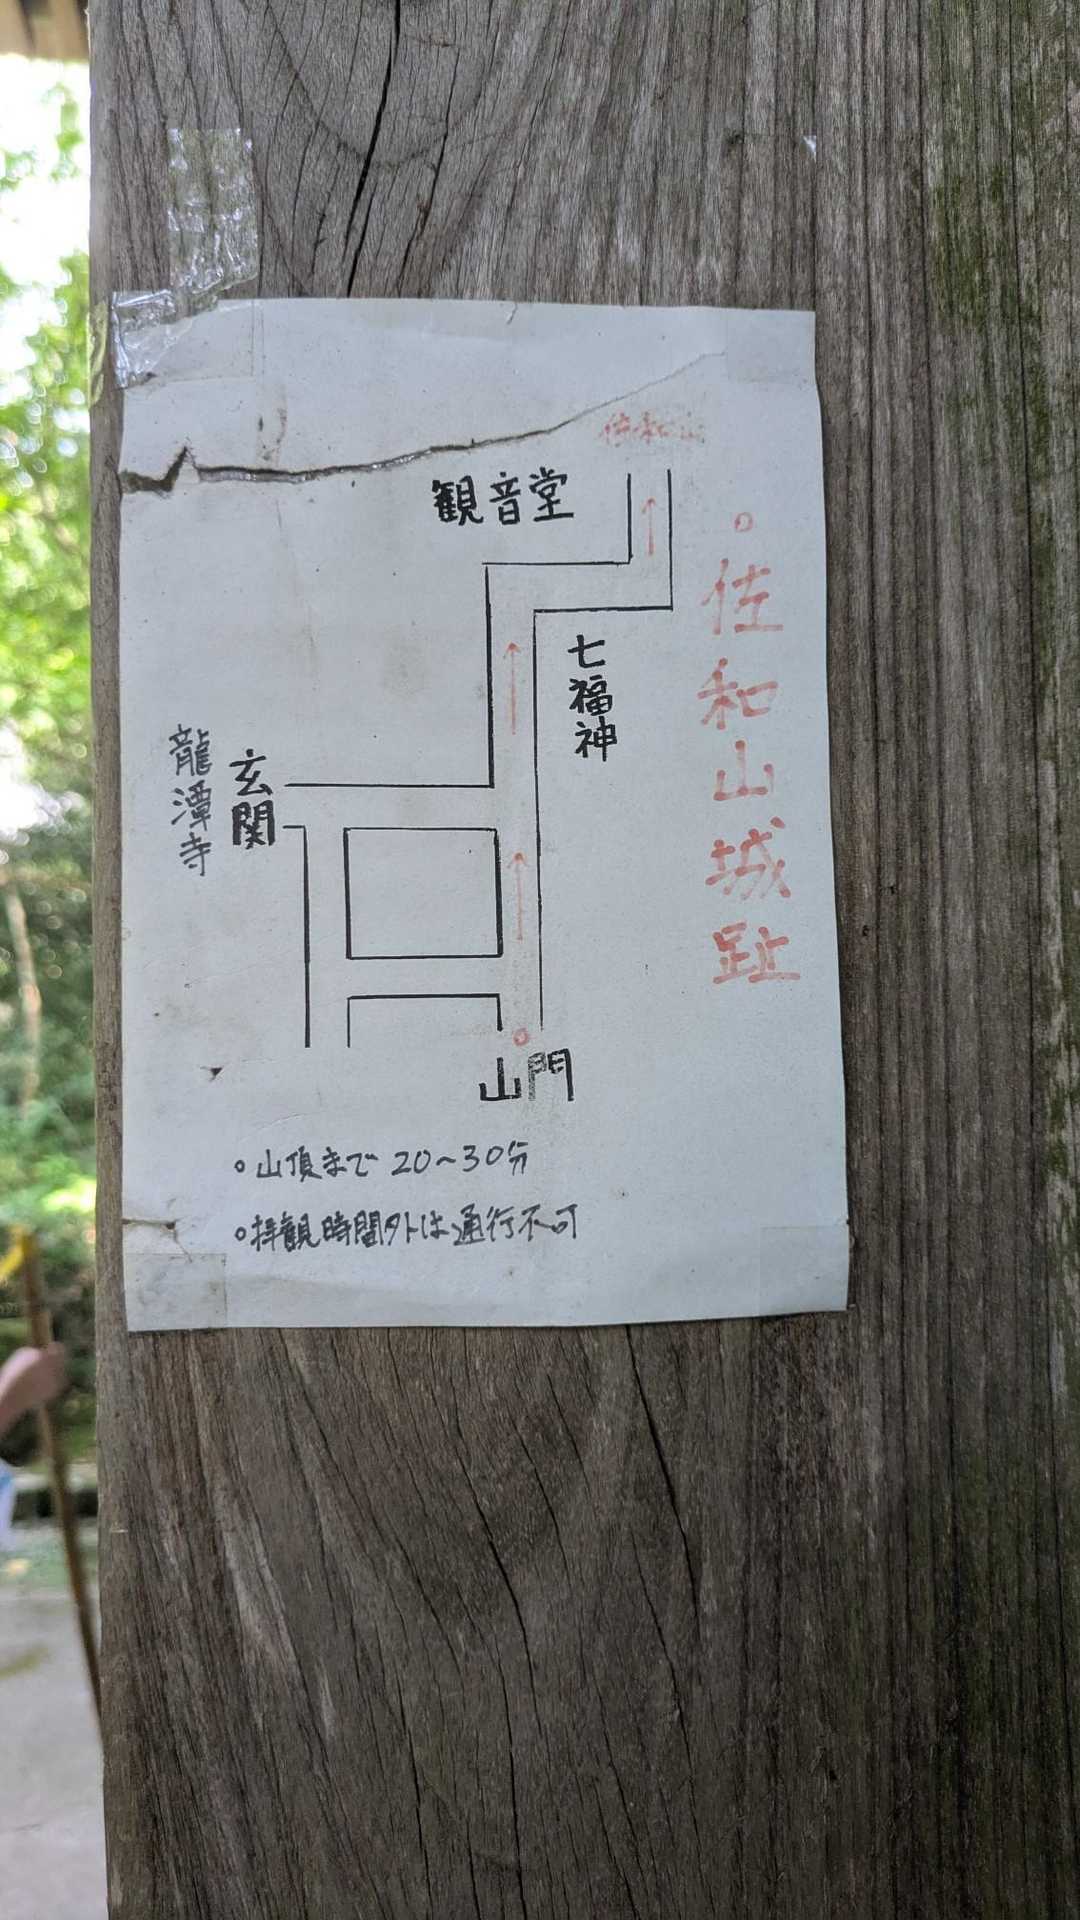 佐和山
観音堂
。佐和山城趾
七福神
玄関
龍潭寺
山門
。山頂まで 20～30分
。拝観時間外は通行不可